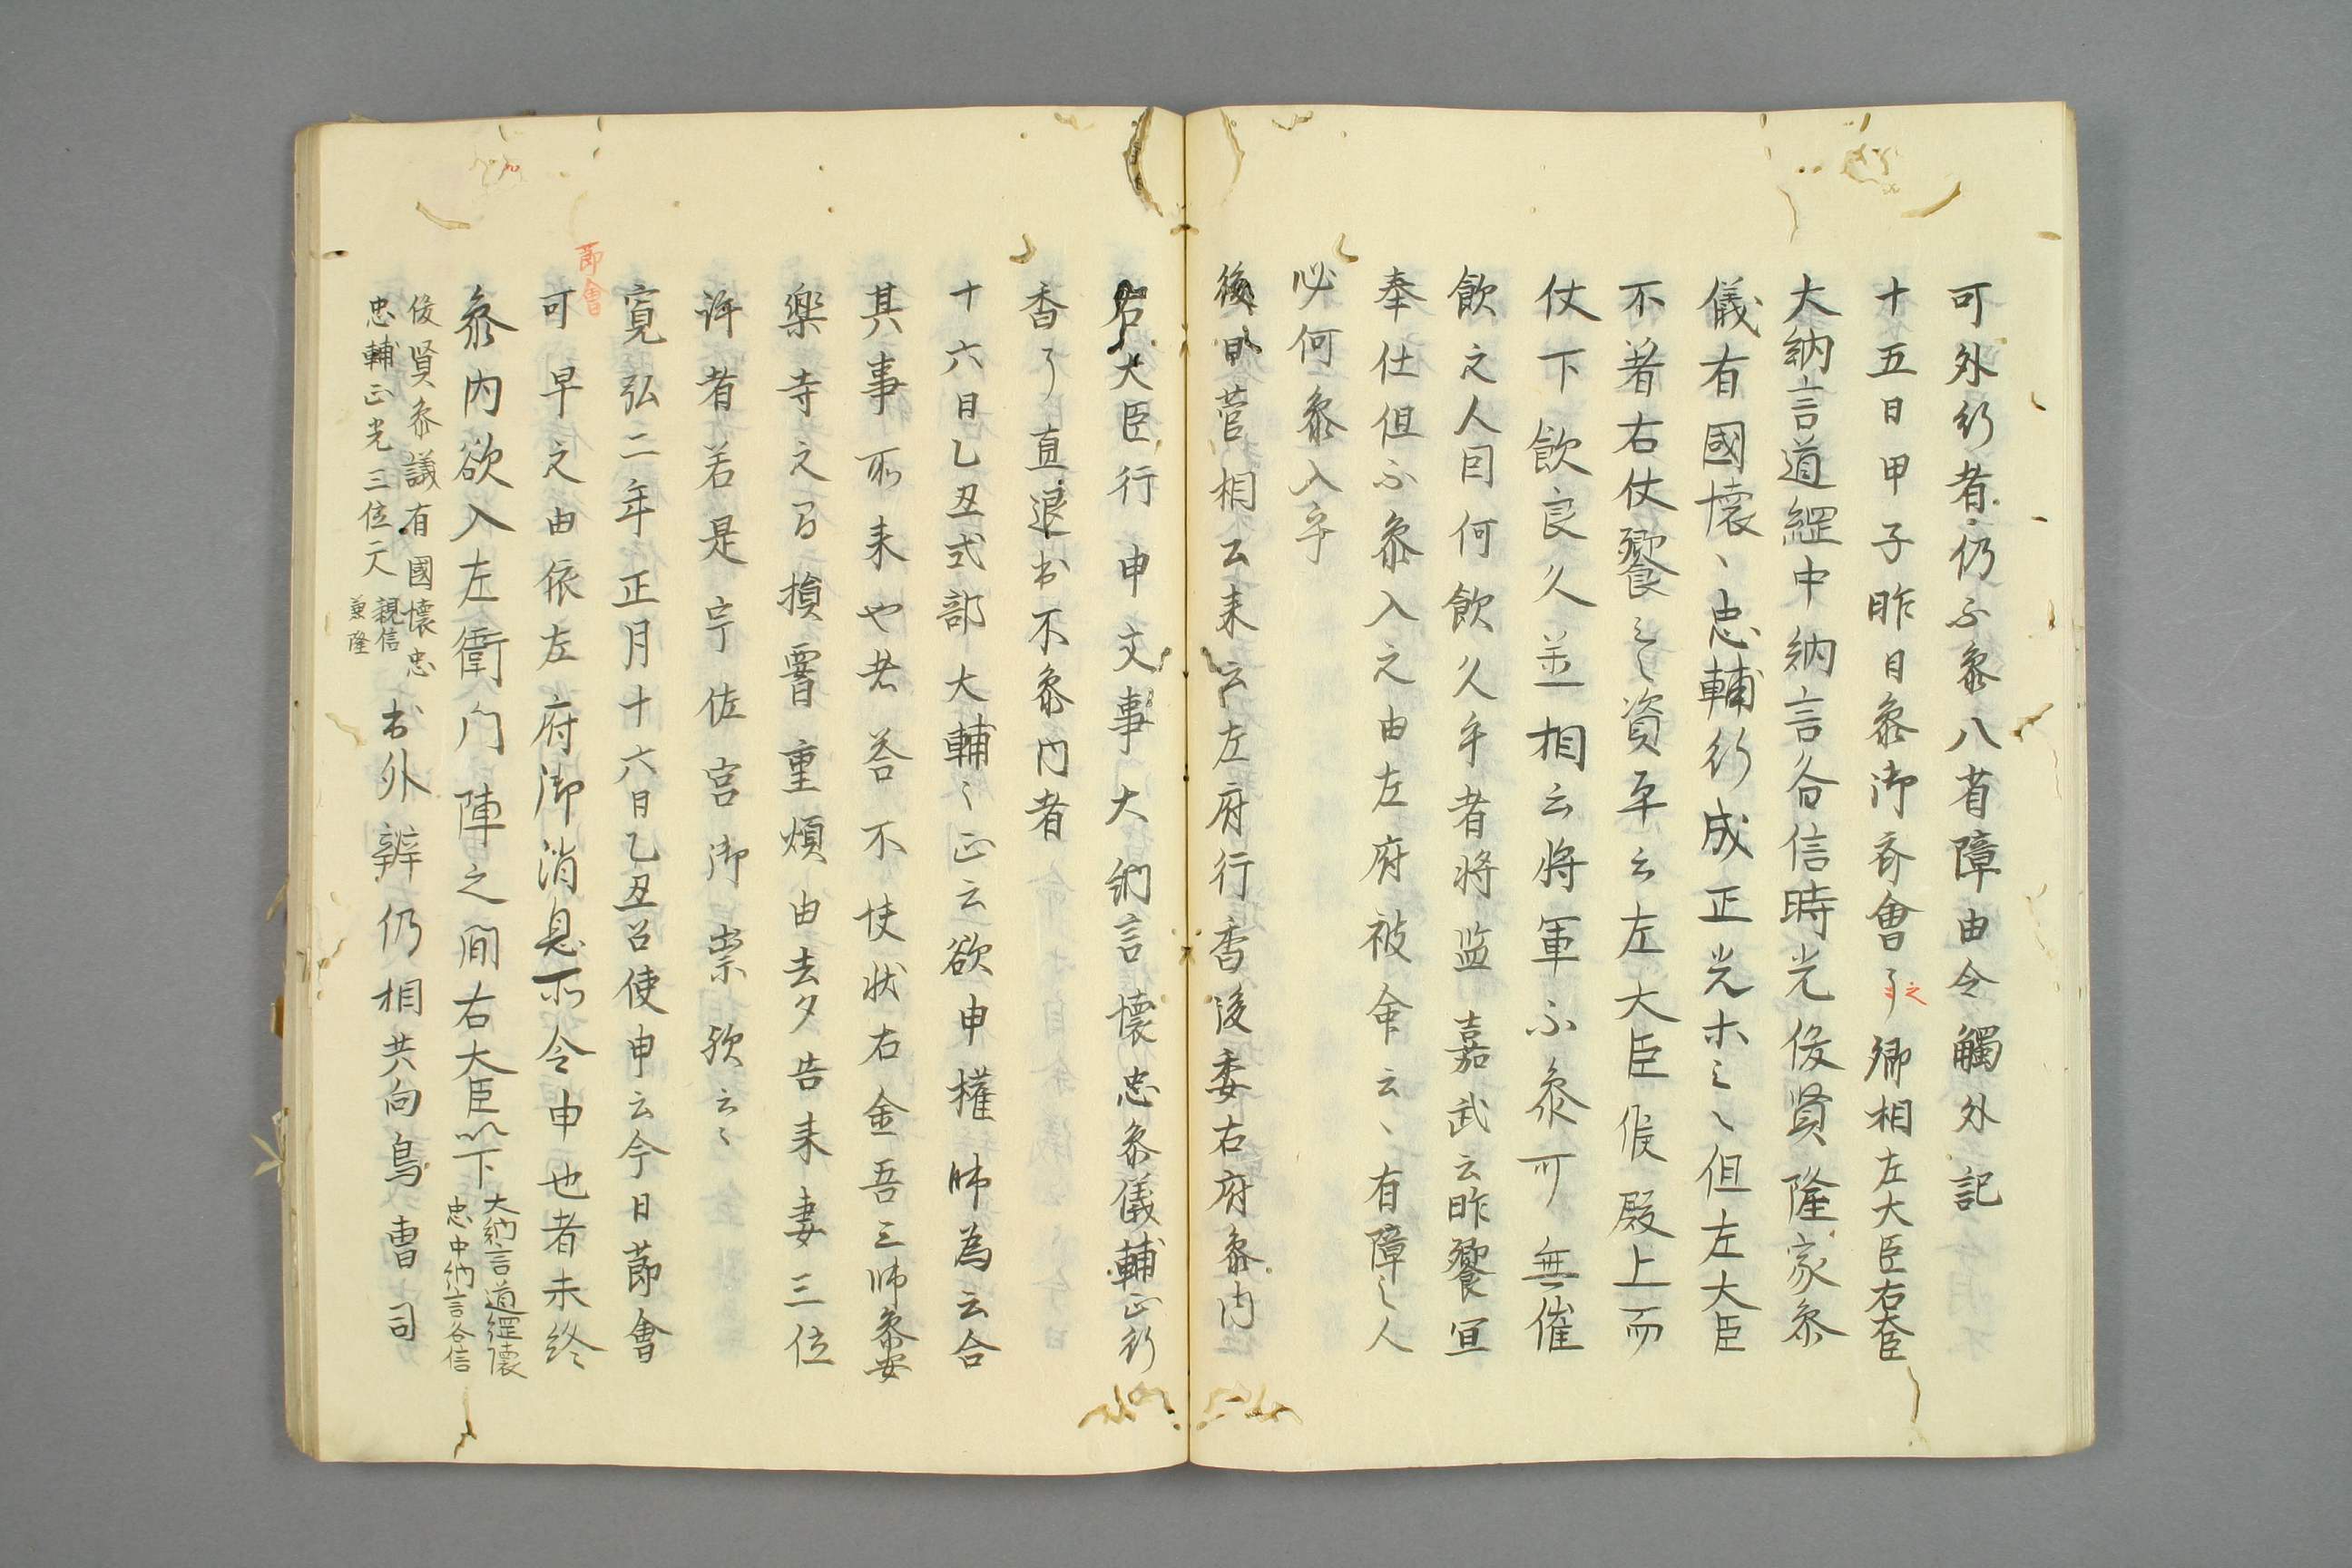 可外行者仍不參八省障由令觸外記
十五日甲子昨日參御斎會了之卿相左大臣右大臣
大納言道綱中納言斉信時光俊賢隆家參
儀有國懐〻忠輔行成正光ホ云〻但左大臣
不着右仗饗云〻資平云左大臣候殿上而
仗下飲良久並相云将軍不參可無催
飲之人因何飲久乎者将監嘉武云昨饗宜
奉仕但不參入之由左府被命云〻有障之人
必何參入乎
後日菅相公来云左府行香後委右府參内
右大臣行申文事大納言懐忠參儀輔正行
香了直退出不參内者
十六日乙丑式部大輔〻正云欲申權帥為云合
其事所来也者答不快状右金吾三帥參安
樂寺之間損害重煩由去夕告来妻三位
許者若是宇佐宮御祟歟云〻
節會
寛弘二年正月十六日乙丑召使申云今日節會
可早之由依左府御消息所令申也者未終
參内欲入左衛門陣之間右大臣以下大納言道綱懐
忠中納言斉信
俊賢參議有國懐忠
忠輔正光三位二人親信
兼隆出外辨仍相共向鳥曹司